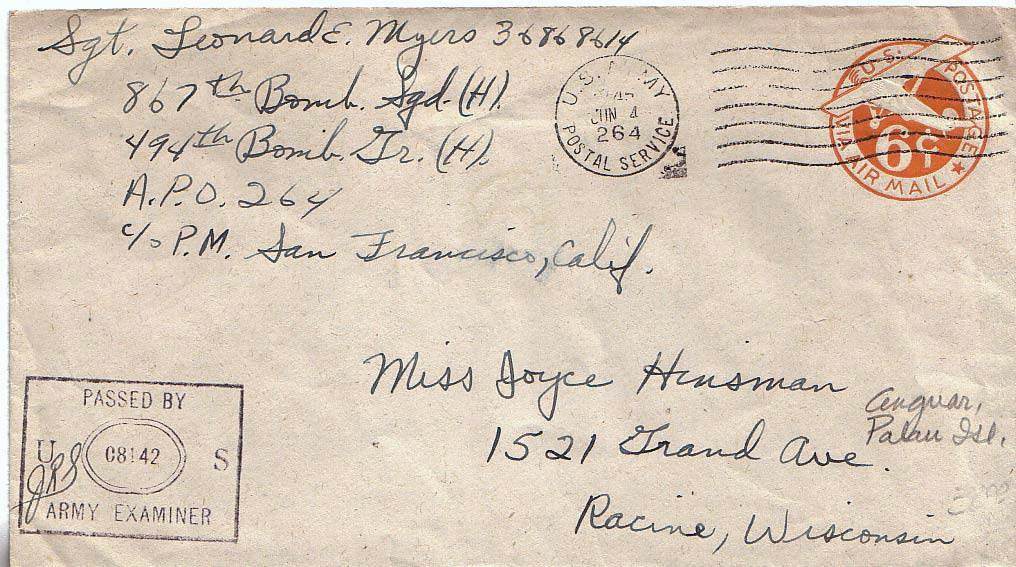 Sgt. Leonard E. Myers 36868614
867th Bomb. Sqd. (H).
494th Bomb. Gr. (H).
A.P.O. 264
c/o P.M. San Francisco, Calif.
U.S. ARMY
JUN 4
264
POSTAL SERVICE
U.S. POSTAGE
6¢
VIA AIR MAIL
Miss Joyce Hinsman
1521 Grand Ave.
Racine, Wisconsin
Anguar,
Palau Isl.
PASSED BY
U 08142 S
JRS
ARMY EXAMINER